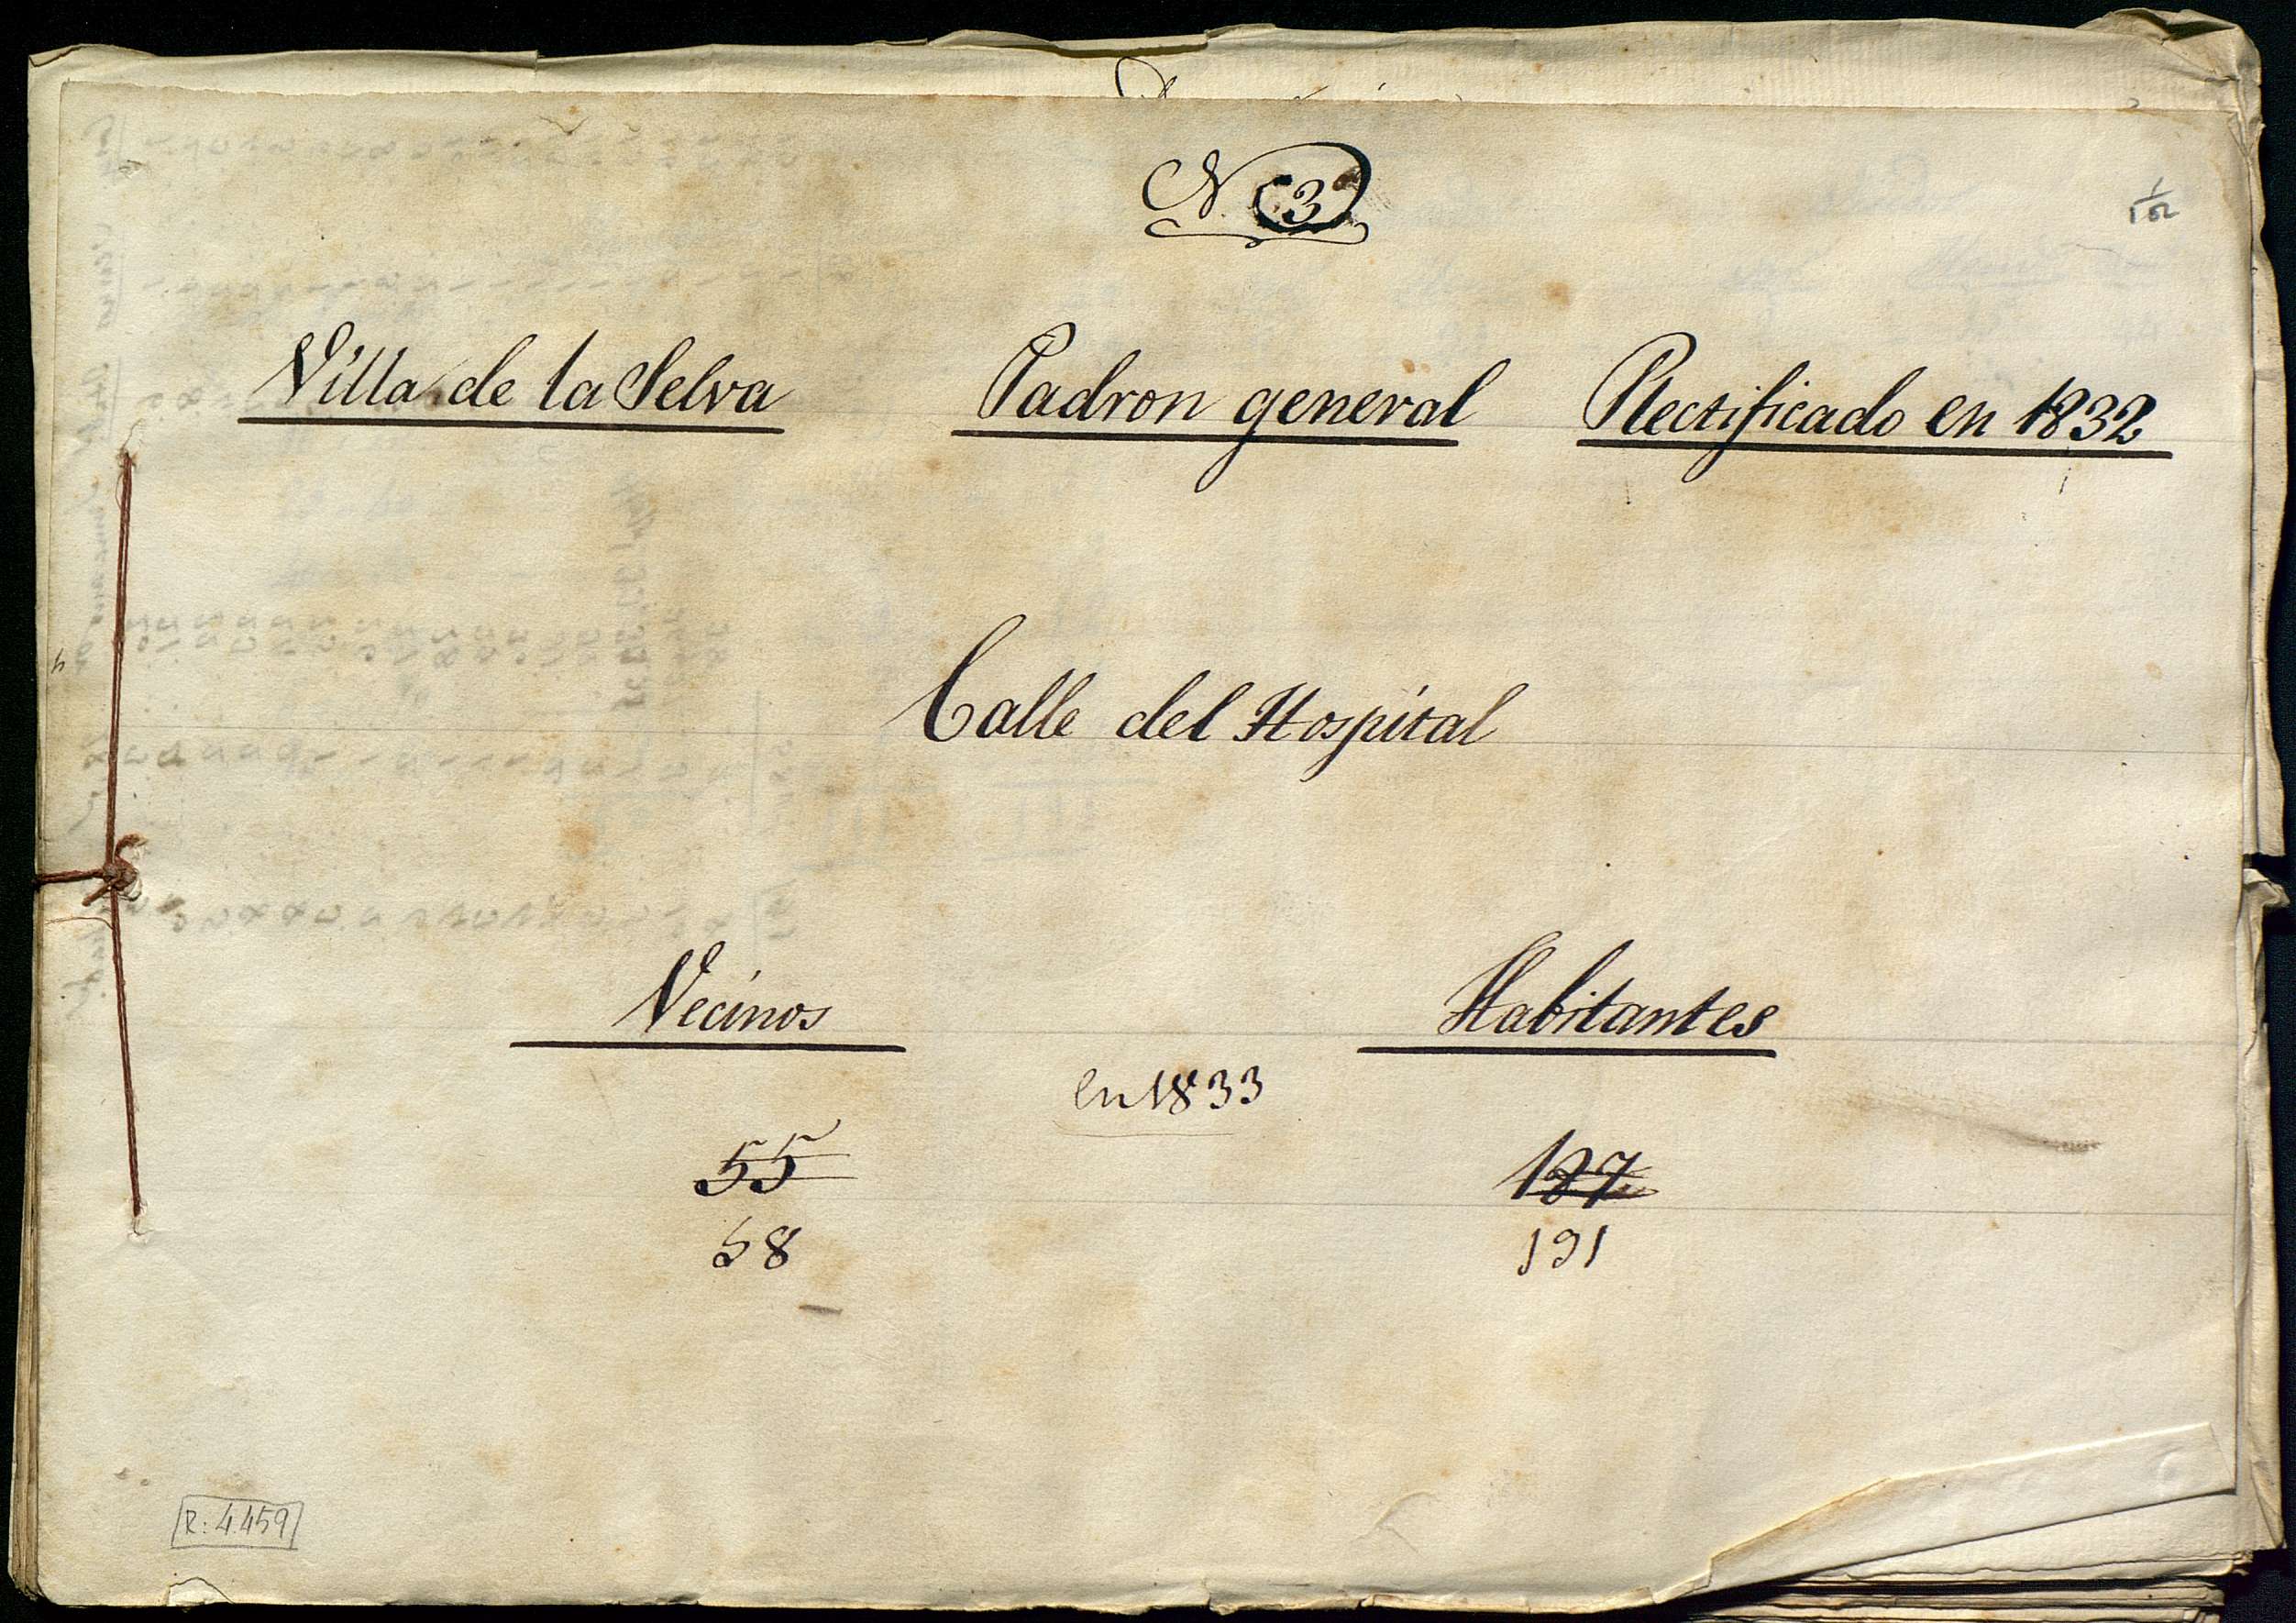 N. 3
Villa de la Selva Padron general Rectificado en 1832
Calle del Hospital
Vecinos Habitantes
en 1833
55 187
58 191
R: 4459